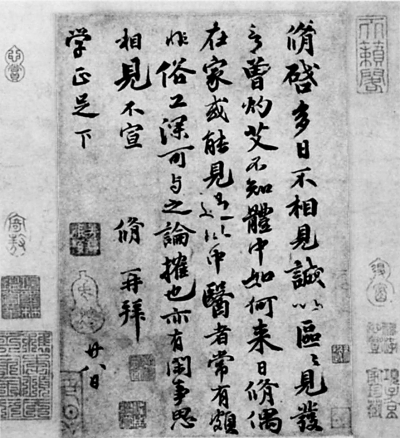 脩啓多日不相見誠以區〻見發
言曾灼艾不知體中如何来日脩偶
在家或能見過此中醫者常有頗
非俗工深可与之論搉也亦有閑事思
相見不宣　脩再拜
学正足下　廿八日
天籟閣